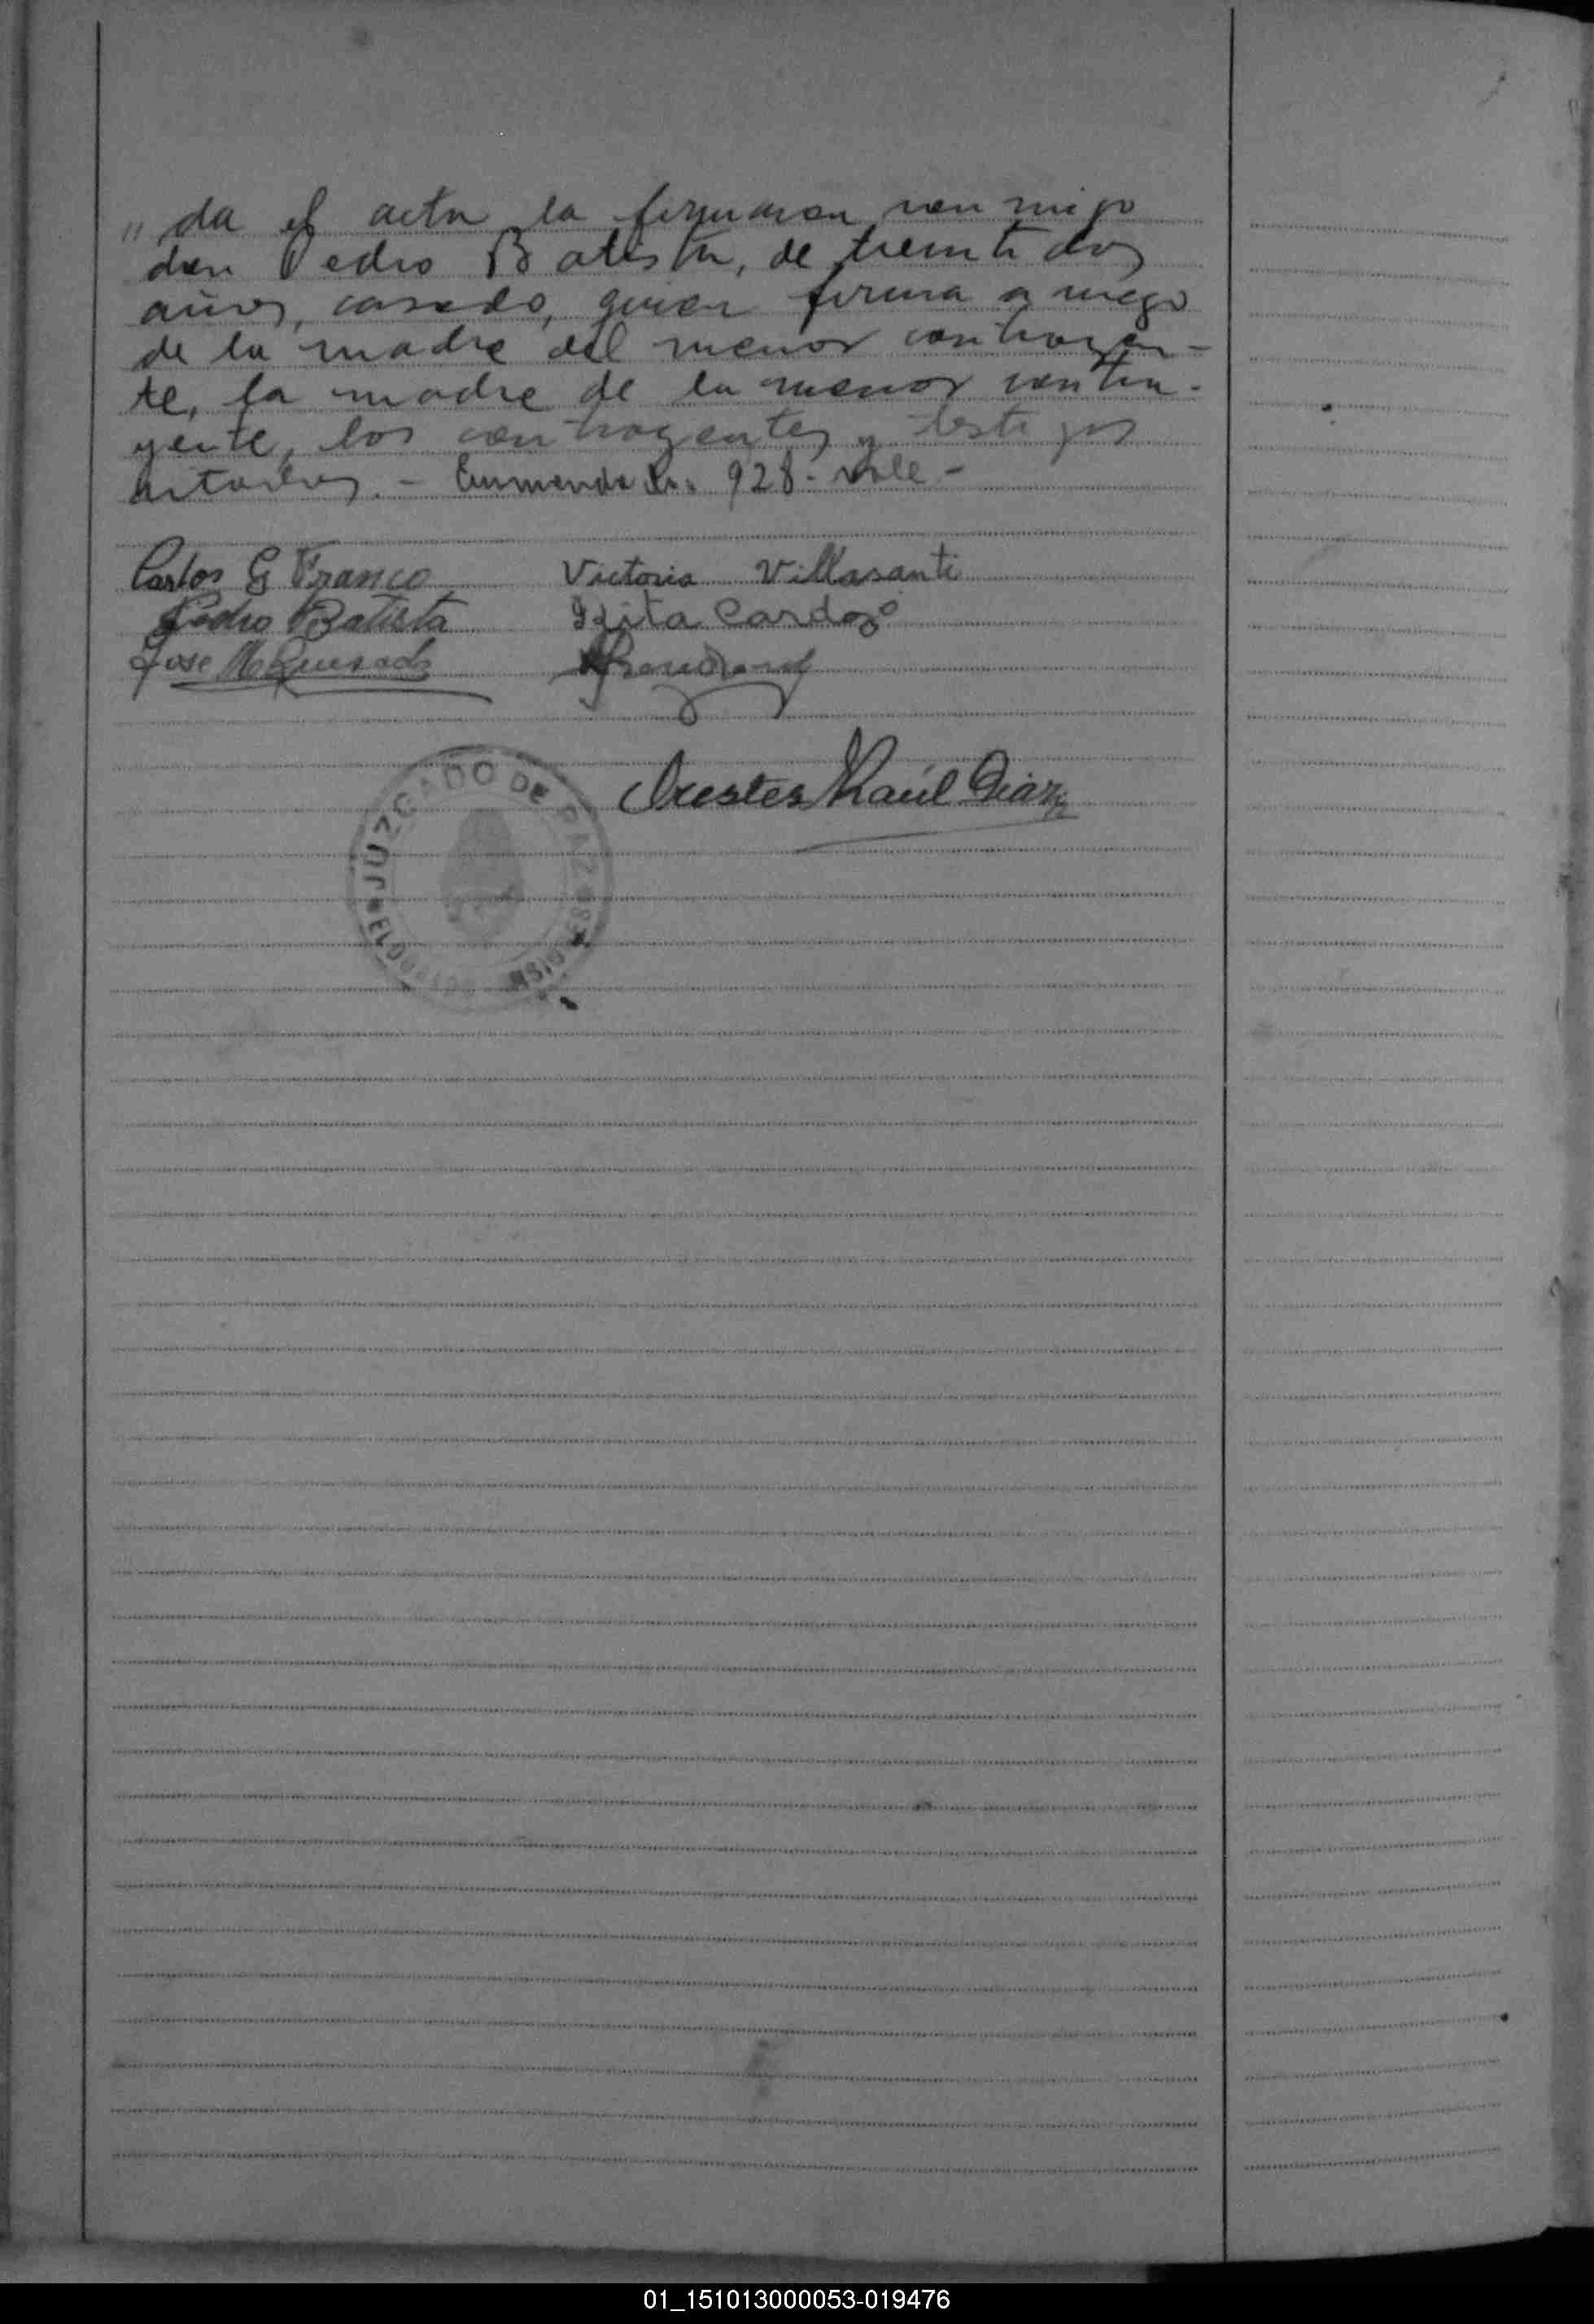 " da el acta la firmaron conmigo
don Pedro Batista, de treinta dos
años, casado, quien firma a ruego
de la madre del menor contrayen-
te, la madre de la menor contra-
yente, los contrayentes y testigos
citados. - Enmendado: 928 - vale -
Carlos G Franco Victoria Villasanti
Pedro Batista Cardozo
Jose M Quesada
Orestes Raúl Diaz
JUZGADO DE PAZ
01_151013000053-019476